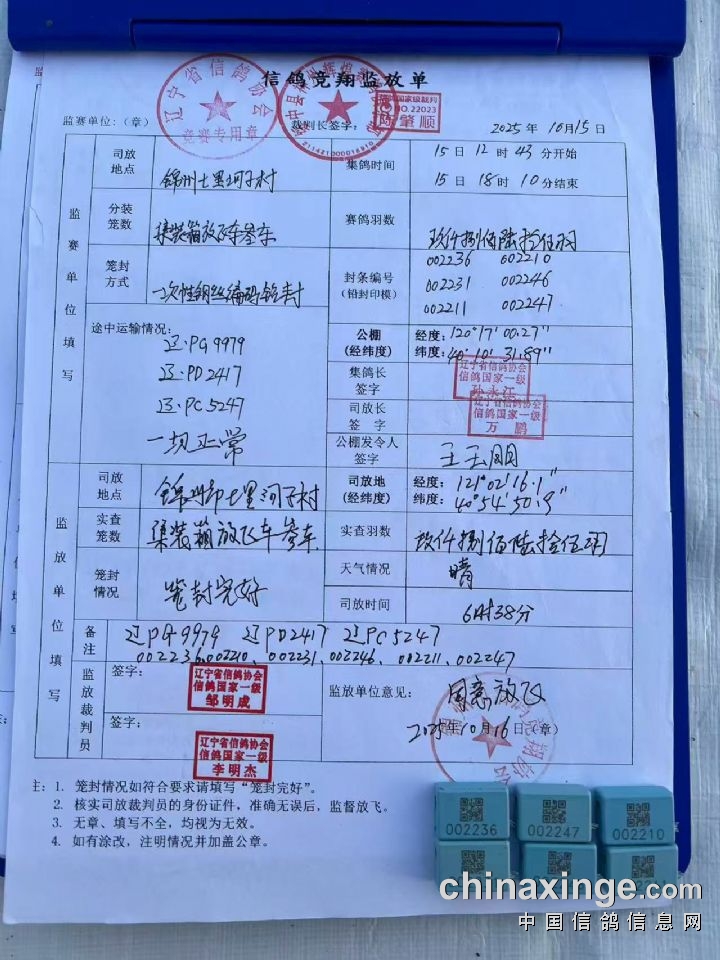 信鸽竞翔监放单
辽宁省信鸽协会
竞赛专用章
信鸽国家级裁判
NO.22023
陈肇顺
监赛单位:(章) 裁判长签字: 2025年10月15日
监赛单位填写
司放地点 锦州七里河子村 集鸽时间 15日12时43分开始
15日18时10分结束
分装笼数 集装箱放飞车叁车 赛鸽羽数 玖仟捌佰陆拾伍羽
笼封方式 一次性钢丝编码铅封 封条编号(铅封印模) 002236 002210
002231 002246
002211 002247
途中运输情况:
辽·PG9979
辽·PD2417
辽·PC5247
一切正常
公棚(经纬度) 经度:120°17′00.27″
纬度:40°10′31.89″
集鸽长签字 辽宁省信鸽协会
信鸽国家一级
孙永江
司放长签字 辽宁省信鸽协会
信鸽国家一级
万鹏
公棚发令人签字 王玉刚
监放单位填写
司放地点 锦州市七里河子村 司放地(经纬度) 经度:121°02′16.1″
纬度:40°54′50.9″
实查笼数 集装箱放飞车叁车 实查羽数 玖仟捌佰陆拾伍羽
笼封情况 笼封完好 天气情况 晴
司放时间 6时38分
备注 辽PG9979 辽PD2417 辽PC5247
002236、002210、002231、002246、002211、002247
监放裁判员
签字: 辽宁省信鸽协会
信鸽国家一级
邹明成
签字: 辽宁省信鸽协会
信鸽国家一级
李明杰
监放单位意见: 同意放飞
2025年10月16日(章)
注: 1. 笼封情况如符合要求请填写“笼封完好”。
2. 核实司放裁判员的身份证件,准确无误后,监督放飞。
3. 无章、填写不全,均视为无效。
4. 如有涂改,注明情况并加盖公章。
002236
002247
002210
chinaxinge.com
中国信鸽信息网